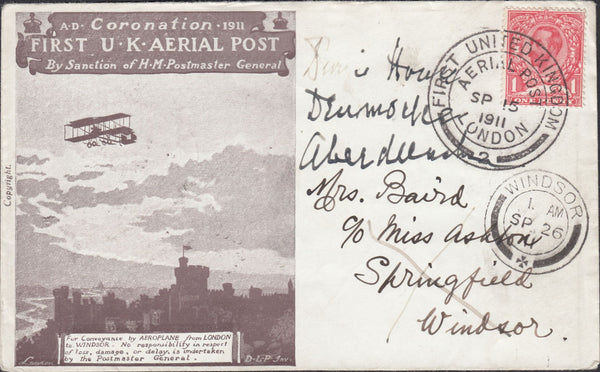 A·D· Coronation · 1911
FIRST U·K·AERIAL POST
By Sanction of H·M·Postmaster General
Copyright.
For Conveyance by AEROPLANE from LONDON
to WINDSOR. No responsibility in respect
of loss, damage, or delay, is undertaken
by the Postmaster General.
London
D·L·P Inv.
FIRST UNITED KINGDOM
AERIAL POST
SP 15
1911
LONDON
1 1
ONE PENNY
House
Aberdeenshire
Mrs. Baird
c/o Miss Ashton
Springfield
Windsor.
WINDSOR
1. AM
SP 26